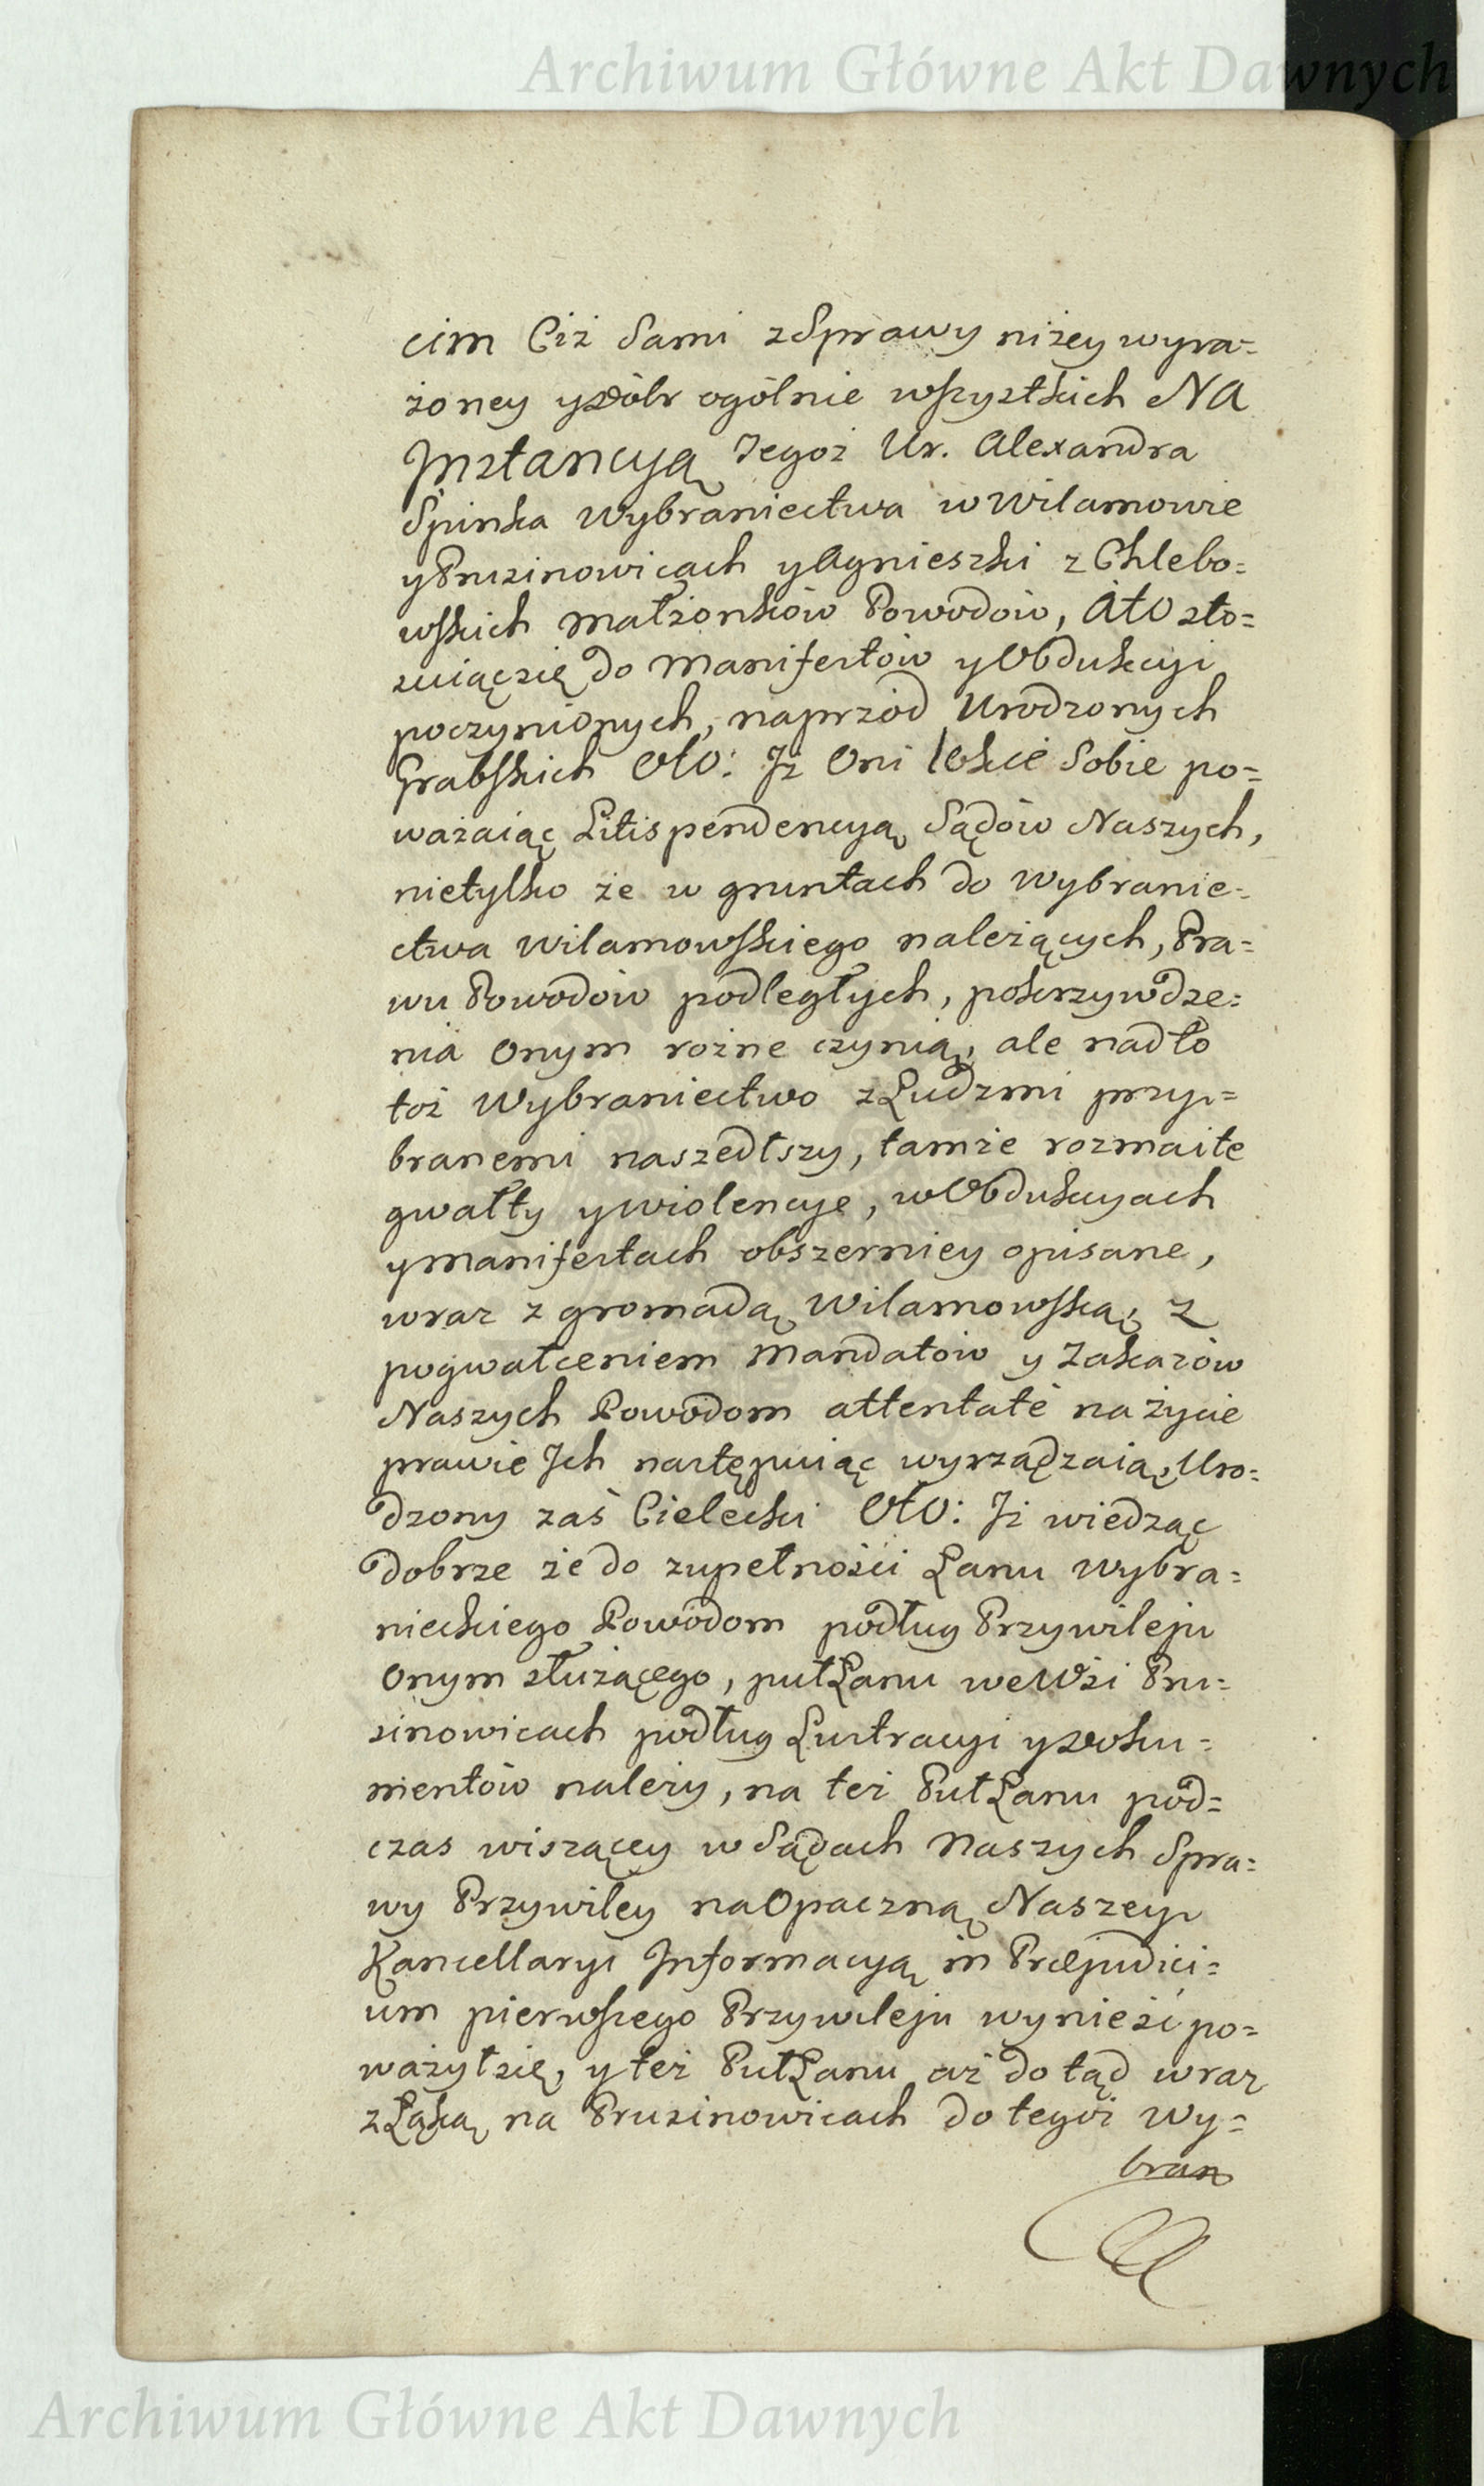 Archiwum Główne Akt Dawnych
cim Ciż Sami z Sprawy niżey wyra=
żoney y Dóbr ogólnie wszystkich NA
Instancyą Tegoż Ur. Alexandra
Spinka Wybraniectwa w Wilamowie
y Prusinowicach y Agnieszki z Chlebo=
wskich Małżonków Powodów, Ato sto=
suiąc się do Manifestów y Obdukcyi
poczynionych, naprzód Urodzonych
Grabskich Oto: Iż Oni lekce Sobie po=
ważaiąc Litispendencyą Sądów Naszych,
nietylko że w gruntach do Wybranie=
ctwa Wilamowskiego należących, Pra=
wu Powodów podległych, pokrzywdze=
nia Onym rożne czynią, ale nadto
toż Wybraniectwo z Ludzmi przy=
branemi naszedłszy, tamże rozmaite
gwałty y wiolencye, w Obdukcyach
y Manifestach obszerniey opisane,
wraz z gromadą Wilamowską, z
pogwałceniem Mandatów y Zakazów
Naszych Powodom attentate na życie
prawie Ich następuiąc wyrządzaią, Uro=
dzony zaś Cielecki Oto: Iż wiedząc
dobrze że do zupełności Łanu Wybra=
nieckiego Powodom podług Przywileju
Onym służącego, puł Łanu we Wsi Pru=
sinowicach podług Lustracyi y Doku=
mentów należy, na też Puł Łanu pod=
czas wiszącey w Sądach Naszych Spra=
wy Przywiley na Opaczną Naszey
Kancellaryi Informacyą in Præjudici=
um pierwszego Przywileju wynieść po=
ważył się, y też Puł Łanu aż do tąd wraz
z Łąką na Prusinowicach do tegoż Wy=
bran
Archiwum Główne Akt Dawnych